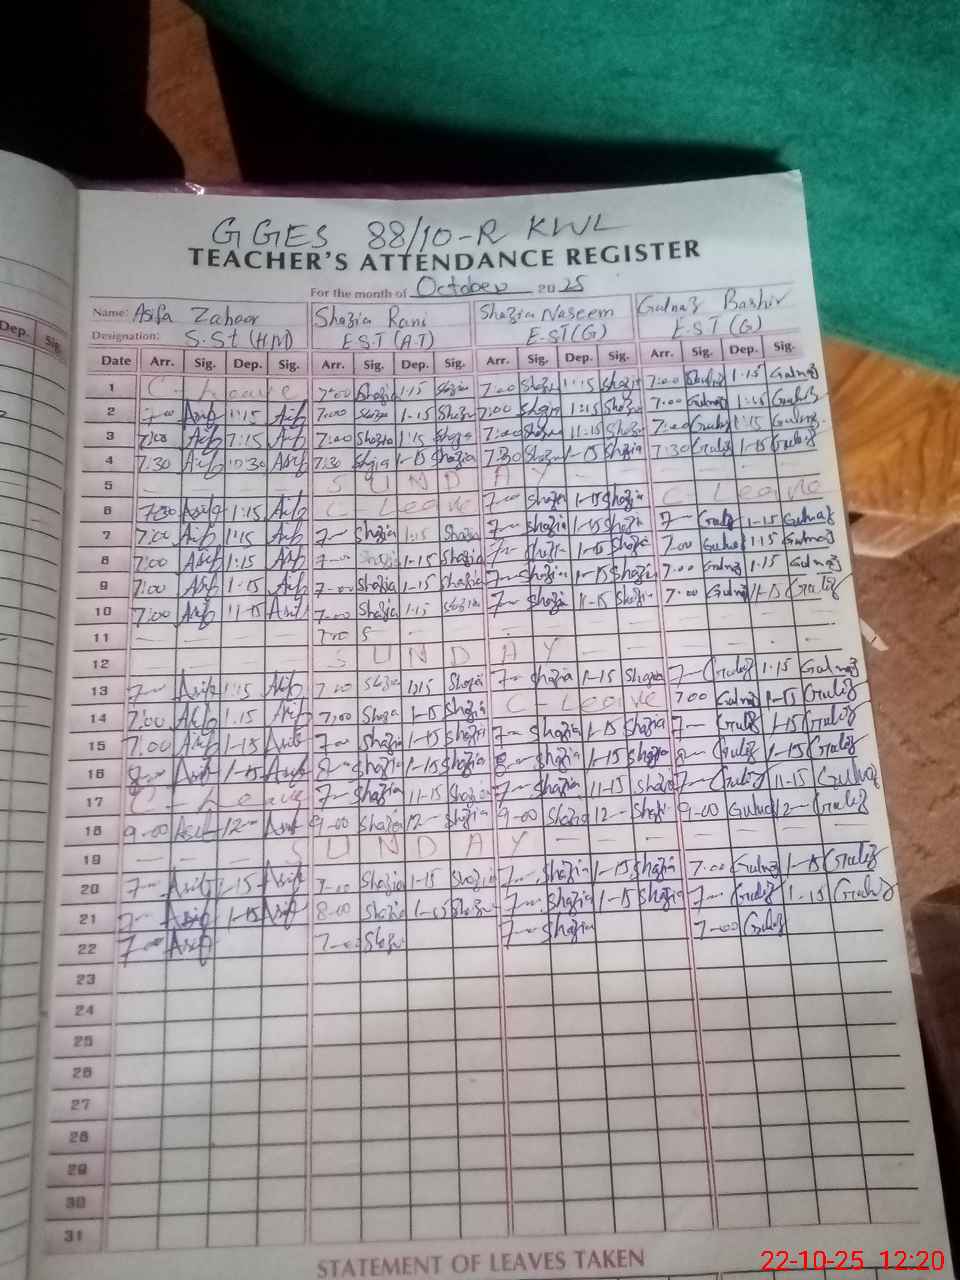 Dep. Sig.
GGES 88/10-R KWL
TEACHER'S ATTENDANCE REGISTER
For the month of October 2025
Name: Asifa Zahoor Shazia Rani Shazia Naseem Gulnaz Bashir
Designation: S.St (HM) E.S.T (A.T) E.ST(G) E.ST(G)
Date Arr. Sig. Dep. Sig. Arr. Sig. Dep. Sig. Arr. Sig. Dep. Sig. Arr. Sig. Dep. Sig.
1 C-Leave 7:00 Shazia 1:15 Shazia 7:00 Shazia 1:15 Shazia 7:00 1:15 Gulnaz
2 7:00 Asif 1:15 Asif 7:00 Shazia 1-15 Shazia 7:00 Shazia 1:15 Shazia 7:00 Gulnaz 1:15
3 7:00 Asif 1:15 Asif 7:00 Shazia 1:15 Shazia 7:00 Shazia 11:15 Shazia 7:00 1:15 Gulnaz
4 7:30 Asif 10:30 Asif 7:30 Shazia 1-15 Shazia 7:30 Shazia 1-15 Shazia 7:30 1-15
5 SUNDAY
6 7:30 Asif 1:15 Asif C-Leave 7-00 Shazia 1-15 Shazia C-Leave
7 7:00 Asif 1:15 Asif 7- Shazia 1:15 Shazia 7- Shazia 1-15 Shazia 7- 1-15 Gulnaz
8 7:00 Asif 1:15 Asif 7-00 Shazia 1-15 Shazia 7- 1-15 Shazia 7:00 Gulnaz 1:15 Gulnaz
9 7:00 Asif 1-15 Asif 7-00 Shazia 1-15 Shazia 7- Shazia 1-15 Shazia 7:00 Gulnaz 1-15 Gulnaz
10 7:00 Asif 11-15 Asif 7-00 Shazia 1-15 Shazia 7- Shazia 11-15 Shazia 7:00 Gulnaz 1-15
11
12 SUNDAY
13 7- Asif 1:15 Asif 7:00 Shazia 1:15 Shazia 7- Shazia 1-15 Shazia 7- 1:15 Gulnaz
14 7:00 Asif 1:15 Asif 7:00 Shazia 1-15 Shazia C-Leave 7:00 Gulnaz 1-15
15 7:00 Asif 1-15 Asif 7- Shazia 1-15 Shazia 7- Shazia 1-15 Shazia 7- 1-15
16 8- Asif 1-15 Asif 8- Shazia 1-15 Shazia 8- Shazia 1-15 Shazia 8- 1-15
17 C-Leave 7- Shazia 11-15 Shazia 7- Shazia 11-15 Shazia 7- 11-15 Gulnaz
18 9-00 Asif 12- Asif 9-00 Shazia 12- Shazia 9-00 Shazia 12- Shazia 9-00 Gulnaz 12-
19 SUNDAY
20 7- Asif 1-15 Asif 7-00 Shazia 1-15 Shazia 7- Shazia 1-15 Shazia 7:00 Gulnaz 1-15
21 7- Asif 1-15 Asif 8-00 Shazia 1-15 Shazia 7- Shazia 1-15 Shazia 7- 1-15
22 7-00 Asif 7-00 Shazia 7- Shazia 7-00
23
24
25
26
27
28
29
30
31
STATEMENT OF LEAVES TAKEN
22-10-25 12:20